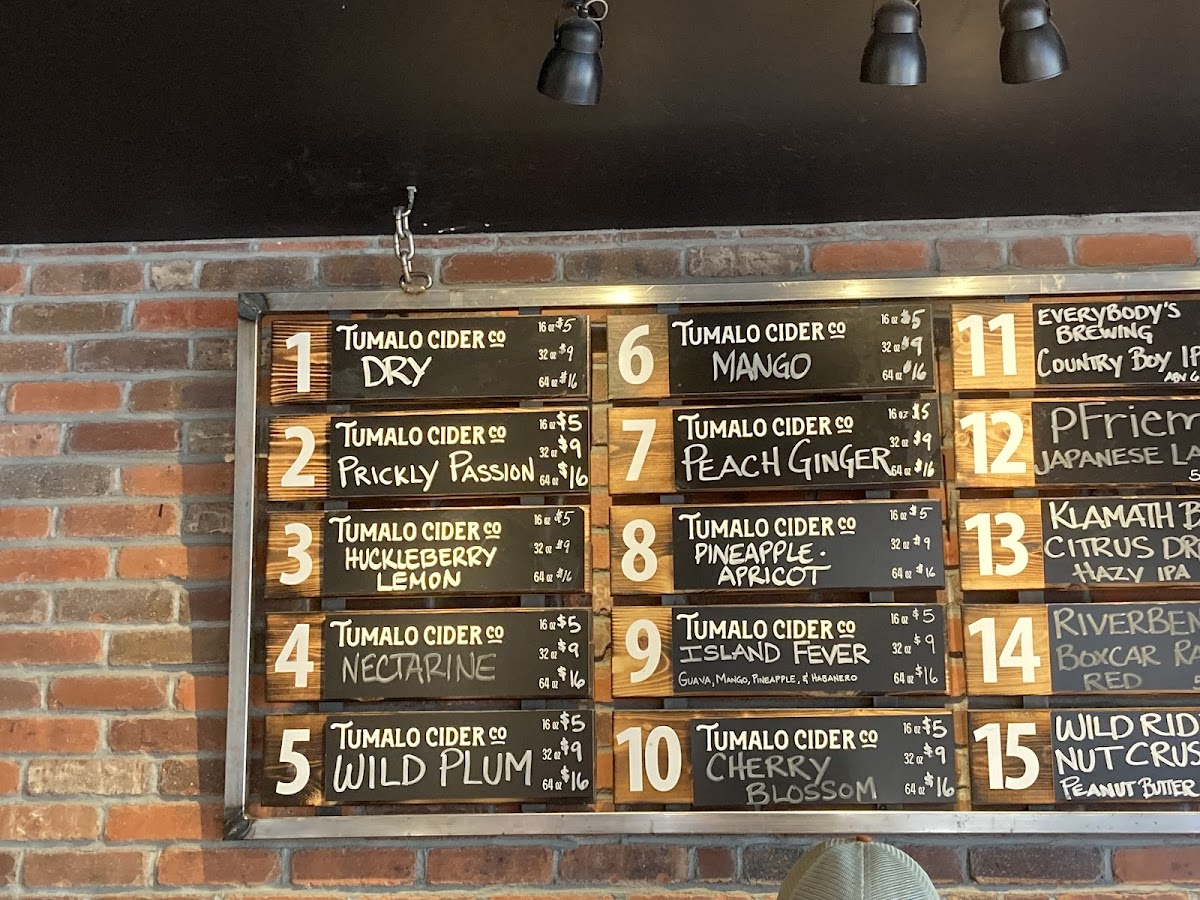 1
TUMALO CIDER CO
DRY
16 oz $5
32 oz $9
64 oz $16
2
TUMALO CIDER CO
PRICKLY PASSION
16 oz $5
32 oz $9
64 oz $16
3
TUMALO CIDER CO
HUCKLEBERRY
LEMON
16 oz $5
32 oz $9
64 oz $16
4
TUMALO CIDER CO
NECTARINE
16 oz $5
32 oz $9
64 oz $16
5
TUMALO CIDER CO
WILD PLUM
16 oz $5
32 oz $9
64 oz $16
6
TUMALO CIDER CO
MANGO
16 oz $5
32 oz $9
64 oz $16
7
TUMALO CIDER CO
PEACH GINGER
16 oz $5
32 oz $9
64 oz $16
8
TUMALO CIDER CO
PINEAPPLE·
APRICOT
16 oz $5
32 oz $9
64 oz $16
9
TUMALO CIDER CO
ISLAND FEVER
GUAVA, MANGO, PINEAPPLE, & HABANERO
16 oz $5
32 oz $9
64 oz $16
10
TUMALO CIDER CO
CHERRY
BLOSSOM
16 oz $5
32 oz $9
64 oz $16
11
EVERYBODY'S
BREWING
COUNTRY BOY IP
ABV 6
12
PFRIEM
JAPANESE LA
5
13
KLAMATH B
CITRUS DR
HAZY IPA
14
RIVERBEN
BOXCAR RA
RED
15
WILD RID
NUT CRUS
PEANUT BUTTER